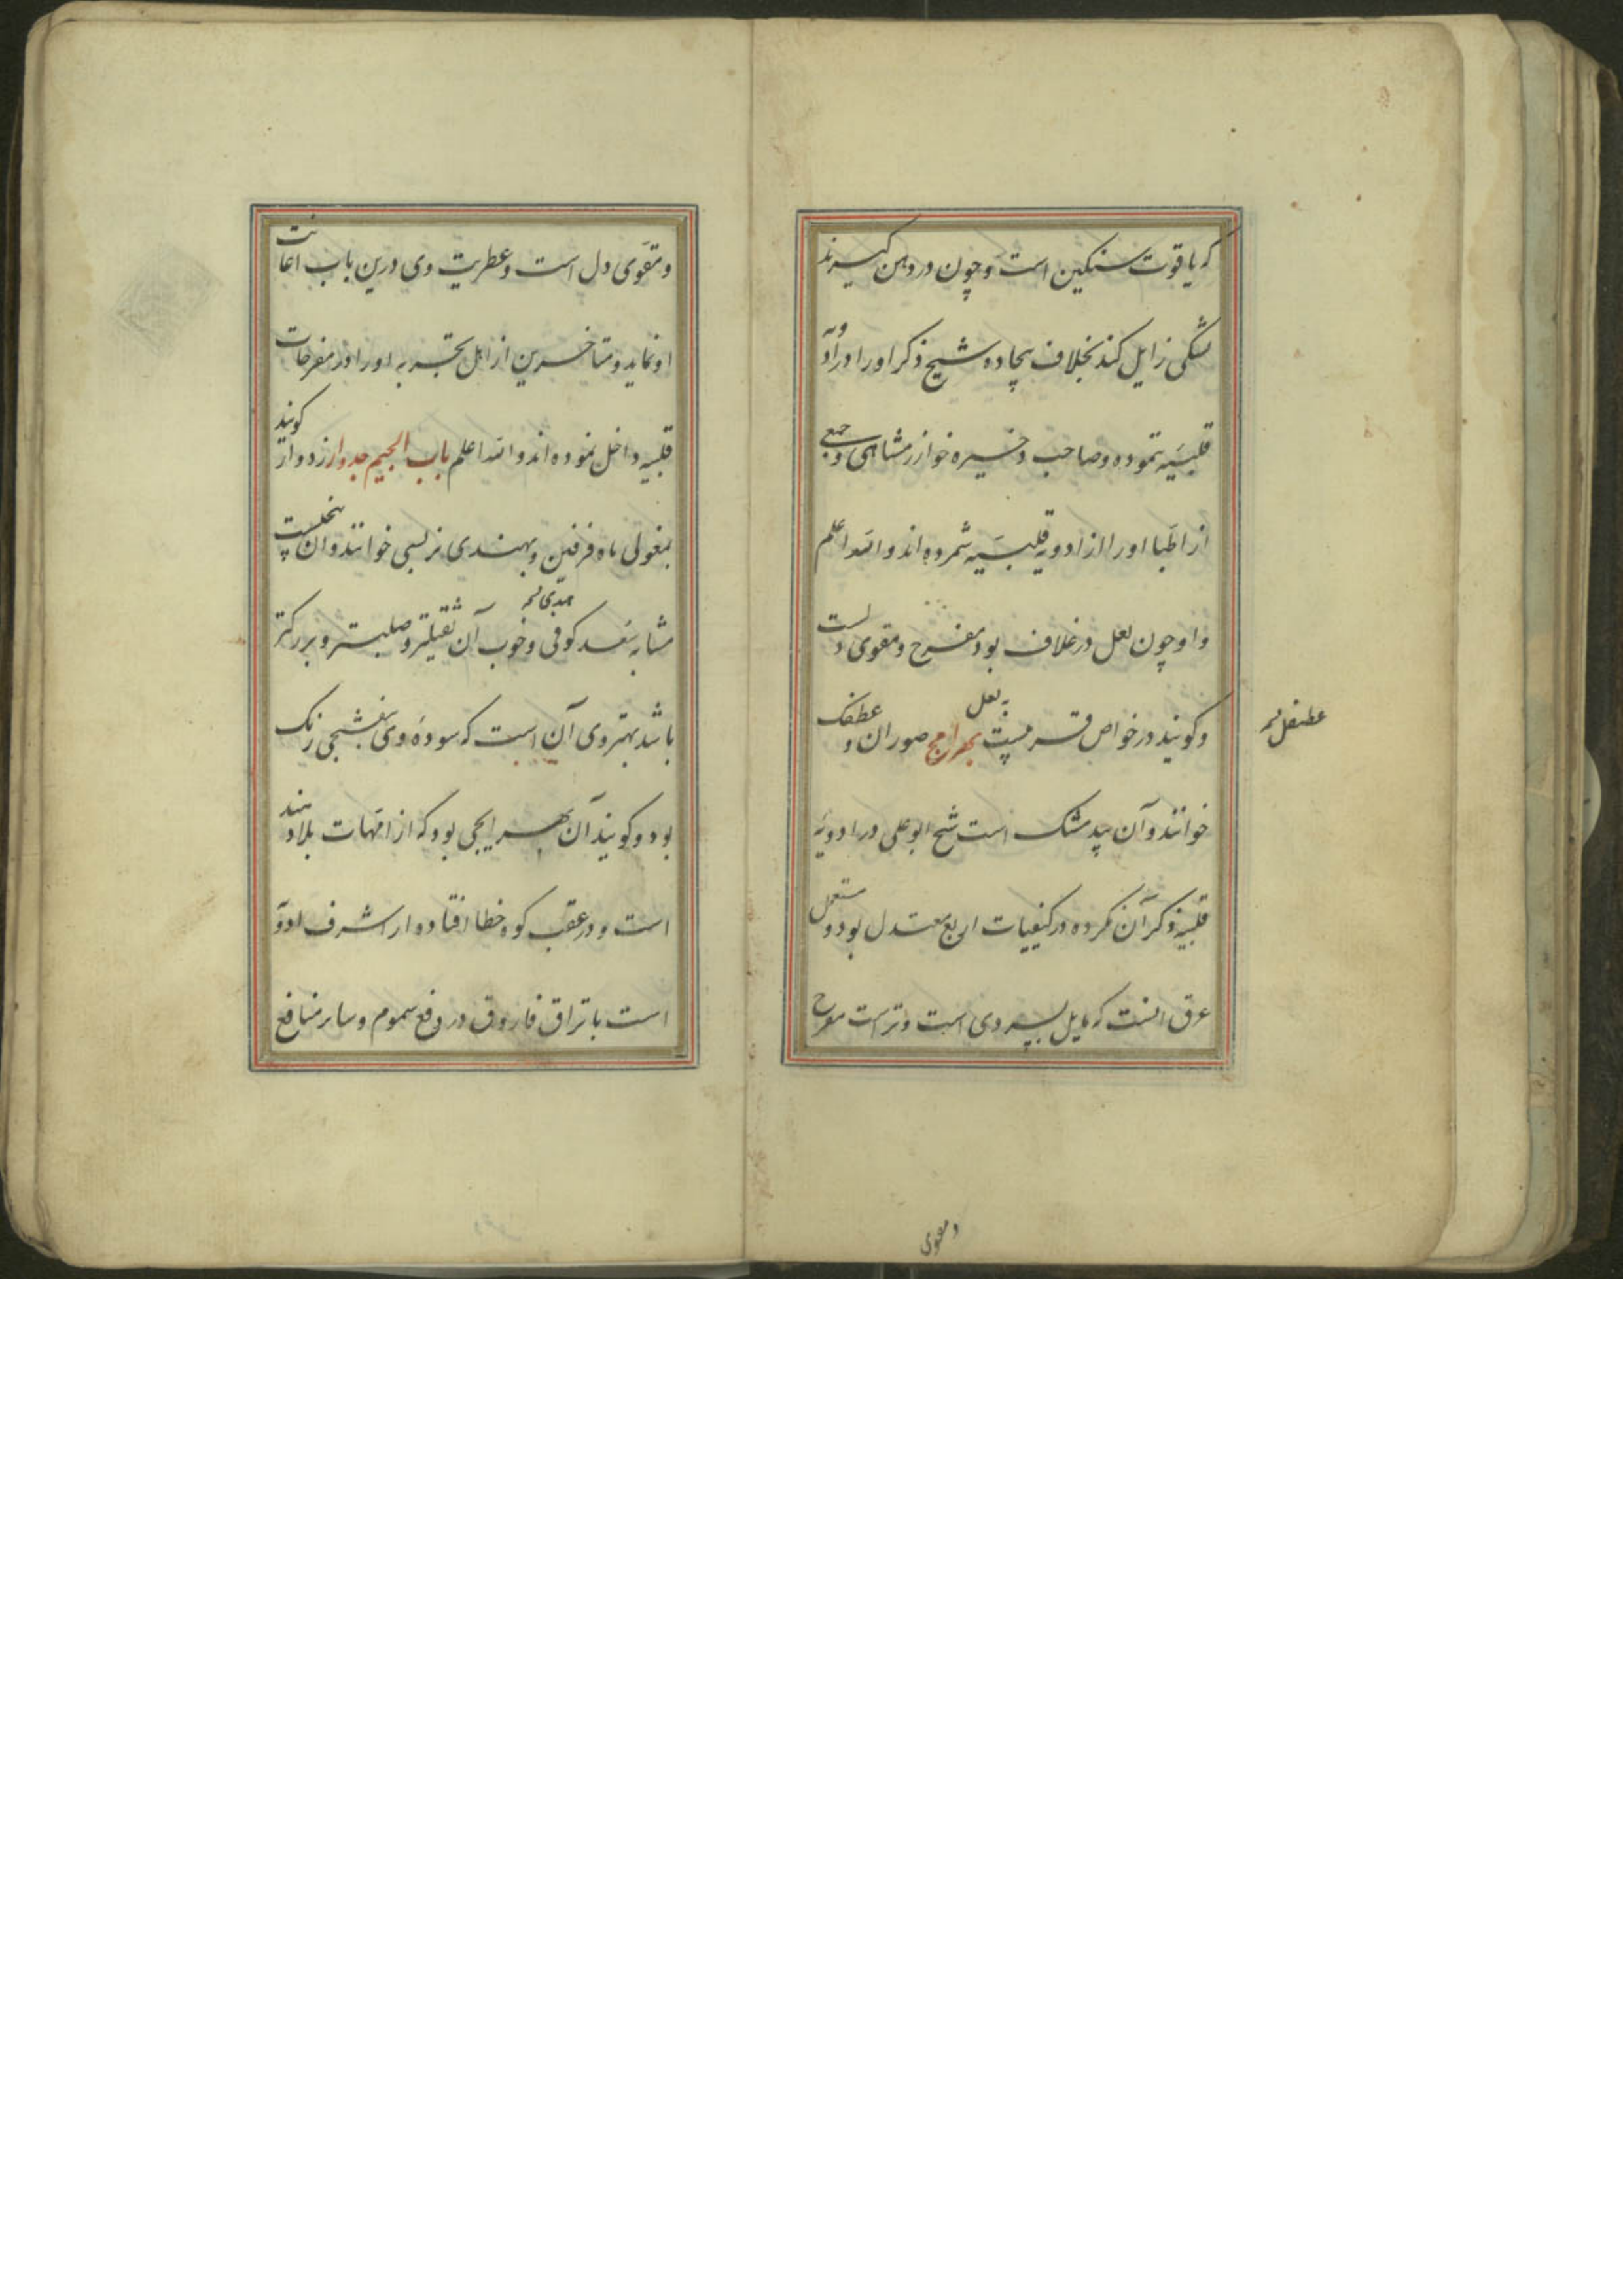 که یاقوت سنکین است و چون در دهن کیرند
تشنکی زایل کند بخلاف بیجاده و شیخ ذکر او را در ادویه
قلبیه نموده و صاحب ذخیره خوارزمشاهی و جمعی
از اطبا او را از ادویه قلبیه شمرده اند و الله اعلم
و او چون لعل در غلاف بود مفرح و مقوی دلست
و کویند در خواص قریبست به لعل بهرامج صوران و عطفک
عطنفل نسخه
خوانند و آن بید مشک است شیخ ابو علی در ادویه
قلبیه ذکر آن نکرده در کیفیات اربع معتدل بود و مستعمل
عرق انست که مایل بسردی است و تر است مفرح
و مقوی
و مقوی دل است و عطریت وی درین باب اعانت
او نماید و متاخرین از اهل تجربه او را در مفرحات
قلبیه داخل نموده اند و الله اعلم باب الجیم جدوار زدوار کویند
بمغولی ماه فرفین و بهندی نربسی خوانند و آن بیخیست
مشابه بسعد کوفی و خوب آن ثقیلتر و صلبتر و بزرکتر
هندی نسخه
باشد بهتر وی آن است که سوده وی بنفشجی رنک
بود و کویند آن بهرایجی بود که از امهات بلاد هند
است و در عقب کوه خطا افتاده و از اشرف ادویه
است با تراق فاروق در دفع سموم و سایر منافع